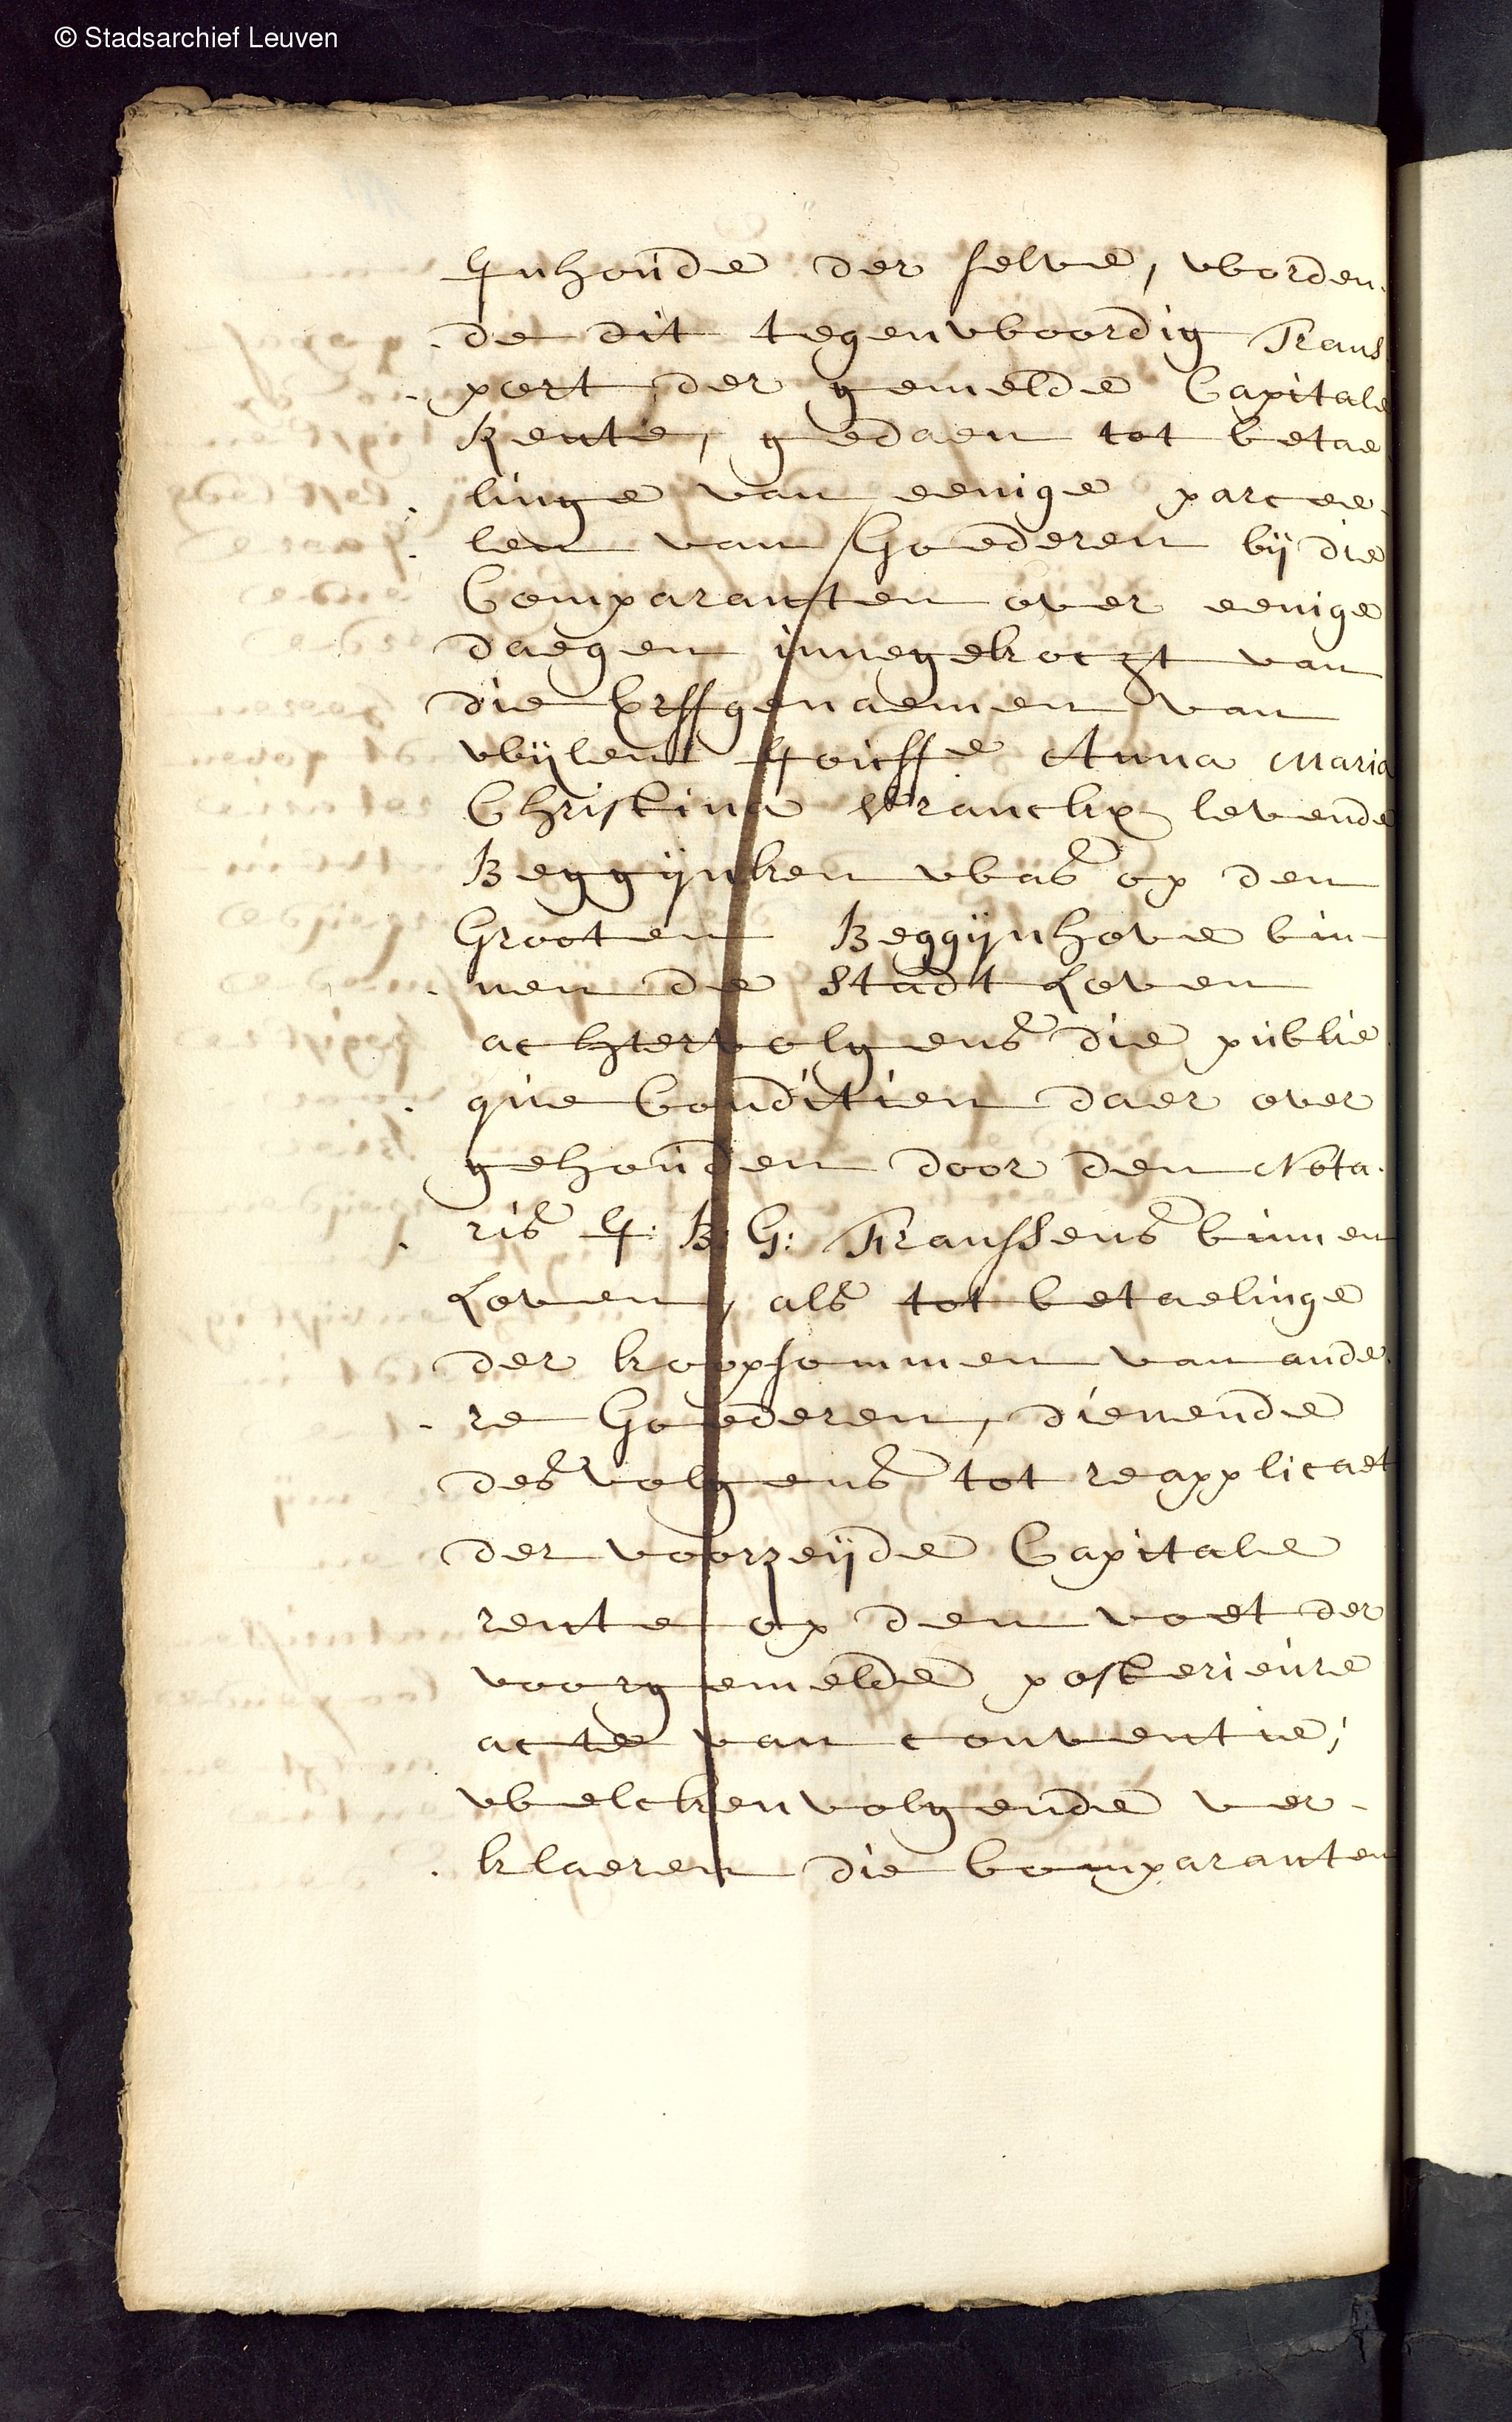 © Stadsarchief Leuven
Inhoude der selve, worden-
de dit tegenwoordig Trans
port der gemelde Capitale
Rente, gedaen tot betae
linge van eenige parcee
len van Goederen bij die
Comparanten over eenige
daegen innegekocht van
die Erffgenaemen van
wijlent Joiffe Anna Maria
Christina Vranckx levende
Beggijnken was op den
Grooten Beggijnhove bin
nen de Stadt Loven
achtervolgens die publie
que Conditien daer over
gehouden door den Nota-
ris J: B: G: Franssens binnen
Loven, als tot betaelinge
der koopsommen van ande
re Goederen, dienende
desvolgens tot reapplicaet
der voorzeijde Capitale
rente op den voet der
voorgemelde posterieure
acte van conventie;
welckenvolgende ver-
klaeren die Comparanten